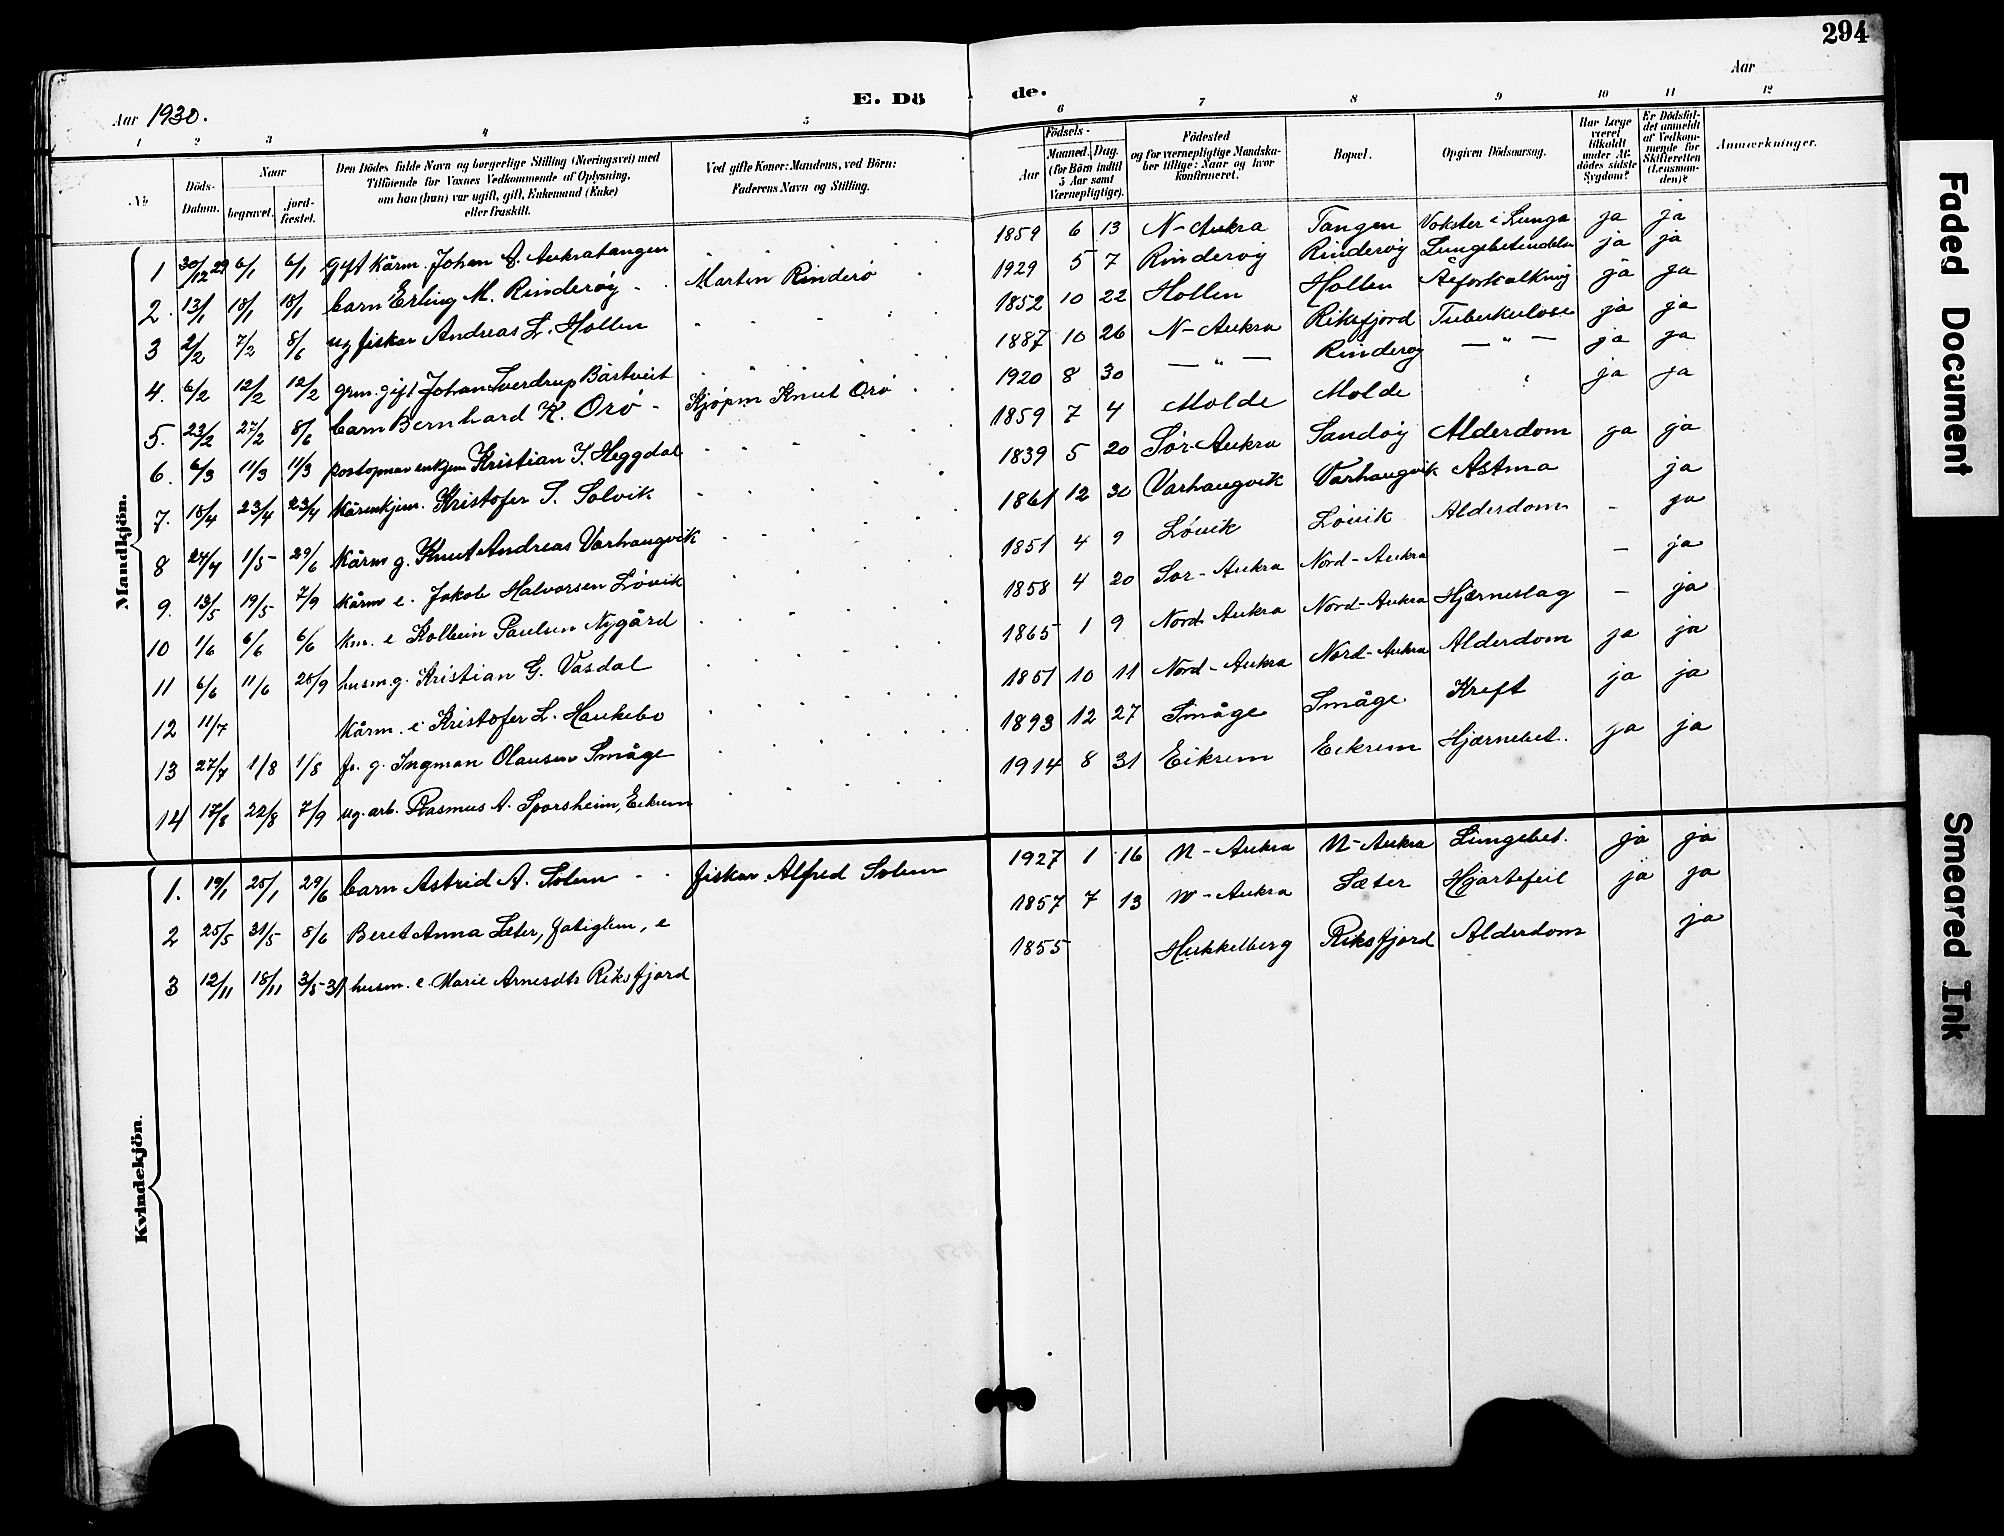 294
Aar 1930.
E. Dö
de.
Aar
1 2 3 4 5 6 7 8 9 10 11 12
No.
Döds-Datum.
Naar
begravet.
jord-fæstet.
Den Dödes fulde Navn og borgerlige Stilling (Næringsvei) med
Tilföiende for Voxnes Vedkommende af Oplysning,
om han (hun) var ugift, gift, Enkemand (Enke)
eller fraskilt.
Ved gifte Koner: Mandens, ved Börn:
Faderens Navn og Stilling.
Födsels-
Aar
Maaned. Dag.
(for Börn indtil
5 Aar samt
Værnepligtige).
Födested
og for værnepligtige Mandska-
ber tillige: Naar og hvor
konfirmeret.
Bopæl.
Opgiven Dödsaarsag.
Har Læge
været
tilkaldt
under Af-
dödes sidste
Sygdom?
Er Dödsfal-
det anmeldt
af Vedkom-
mende for
Skifteretten
(Lensman-
den)?
Anmærkninger.
Mandkjön.
1 30/12 29 6/1 6/1 Gift kårm. Johan A. Aukratangen 1859 6 13 N-Aukra Tangen Vokster i Lunga ja ja
2. 13/1 18/1 18/1 barn Erling M. Rinderøy - Martin Rinderø 1929 5 7 Rinderøy Rinderøy Lungebetendelse ja ja
3 2/2 7/2 8/6 ug fisker Andreas L. Hollen 1852 10 22 Hollen Hollen Åreforkalkning ja ja
4. 6/2 12/2 12/2 grm. gift Johan Sverdrup Båstveit 1887 10 26 N-Aukra Riksfjord Tuberkulose ja ja
5. 23/2 27/2 8/6 barn Bernhard K. Orø - Kjøpm Knut Orø 1920 8 30 — " — Rinderøy — " — ja ja
6. 6/3 11/3 11/3 postopman enkjem Kristian I. Heggdal 1859 7 4 Molde Molde ja ja
7. 18/4 23/4 23/4 Kårmkjem. Kristofer S. Solvik 1839 5 20 Sør-Aukra Sandøy Alderdom ja ja
8 24/4 1/5 29/6 kårm g. Knut Andreas Varhaugvik 1861 12 30 Varhaugvik Varhaugvik Astma ja
9. 13/5 19/5 7/9 kårm e. Jakob Halvorsen Løvik 1851 4 9 Løvik Løvik Alderdom - ja
10 1/6 6/6 6/6 km. e Kolbein Paulsen Nygård 1858 4 20 Sør-Aukra Nord-Aukra - ja
11 6/6 11/6 28/9 husm. g. Kristian G. Vasdal 1865 1 9 Nord-Aukra Nord-Aukra Hjærneslag - ja
12 11/7 Kårm. e Kristofer L. Haukebø 1851 10 11 Nord-Aukra Nord-Aukra Alderdom ja ja
13 27/7 1/8 1/8 fr. g. Ingman Olausen Småge 1893 12 27 Småge Småge Kreft ja ja
14 17/8 22/8 7/9 ug. arb. Rasmus A. Sporsheim, Eikrem 1914 8 31 Eikrem Eikrem Hjærnebet. ja ja
Kvindekjön.
1. 19/1 25/1 29/6 barn Astrid A. Solem - - fisker Alfred Solem 1927 1 16 N-Aukra N-Aukra Lungebet. ja ja
2 25/5 31/5 8/6 Beret Anna Sæter, fatiglem, e 1857 7 13 N-Aukra Sæter Hjartefeil ja ja
3 12/11 18/11 3/5-31 husm. e. Marie Arnesdtr Riksfjord 1855 Hukkelberg Riksfjord Alderdom ja
Faded Document
Smeared Ink